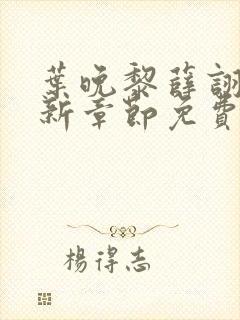 葉晚黎薛詡
新章節免費
楊得志